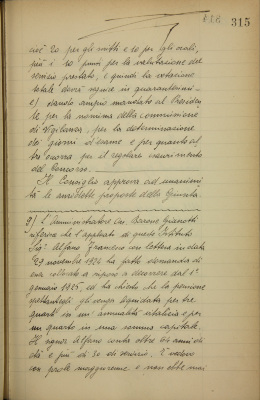 315
cioè 20 per gli scritti e 10 per gli orali,
più i 10 punti per la valutazione del
servizio prestato, e quindi la votazione
totale dovrà essere in quarantesimi.-
c) dando ampio mandato al Presiden
te per la nomina della commissione
di vigilanza, per la determinazione
dei giorni di esame e per quanto al
tro occorra per il regolare
del Concorso.
Il Consiglio approva ad unanimi
tà le suddette proposte della Giunta.
9) L'amministratore Cav. Barone Gianotti
riferisce che l'applicato di questo Istituto
Sig. Alfano Francesco con lettera in data
29 novembre 1924 ha fatto domanda di
essere collocato a riposo a decorrere dal 1º
gennaio 1925, ed ha chiesto che la pensione
spettantegli gli venga liquidata per tre
quarti in un' annualità vitalizia e per
un quarto in una somma capitale.
Il signor Alfano conta oltre 65 anni di
età e più di 30 di servizio. È
con prole maggiorenne e non ebbe mai